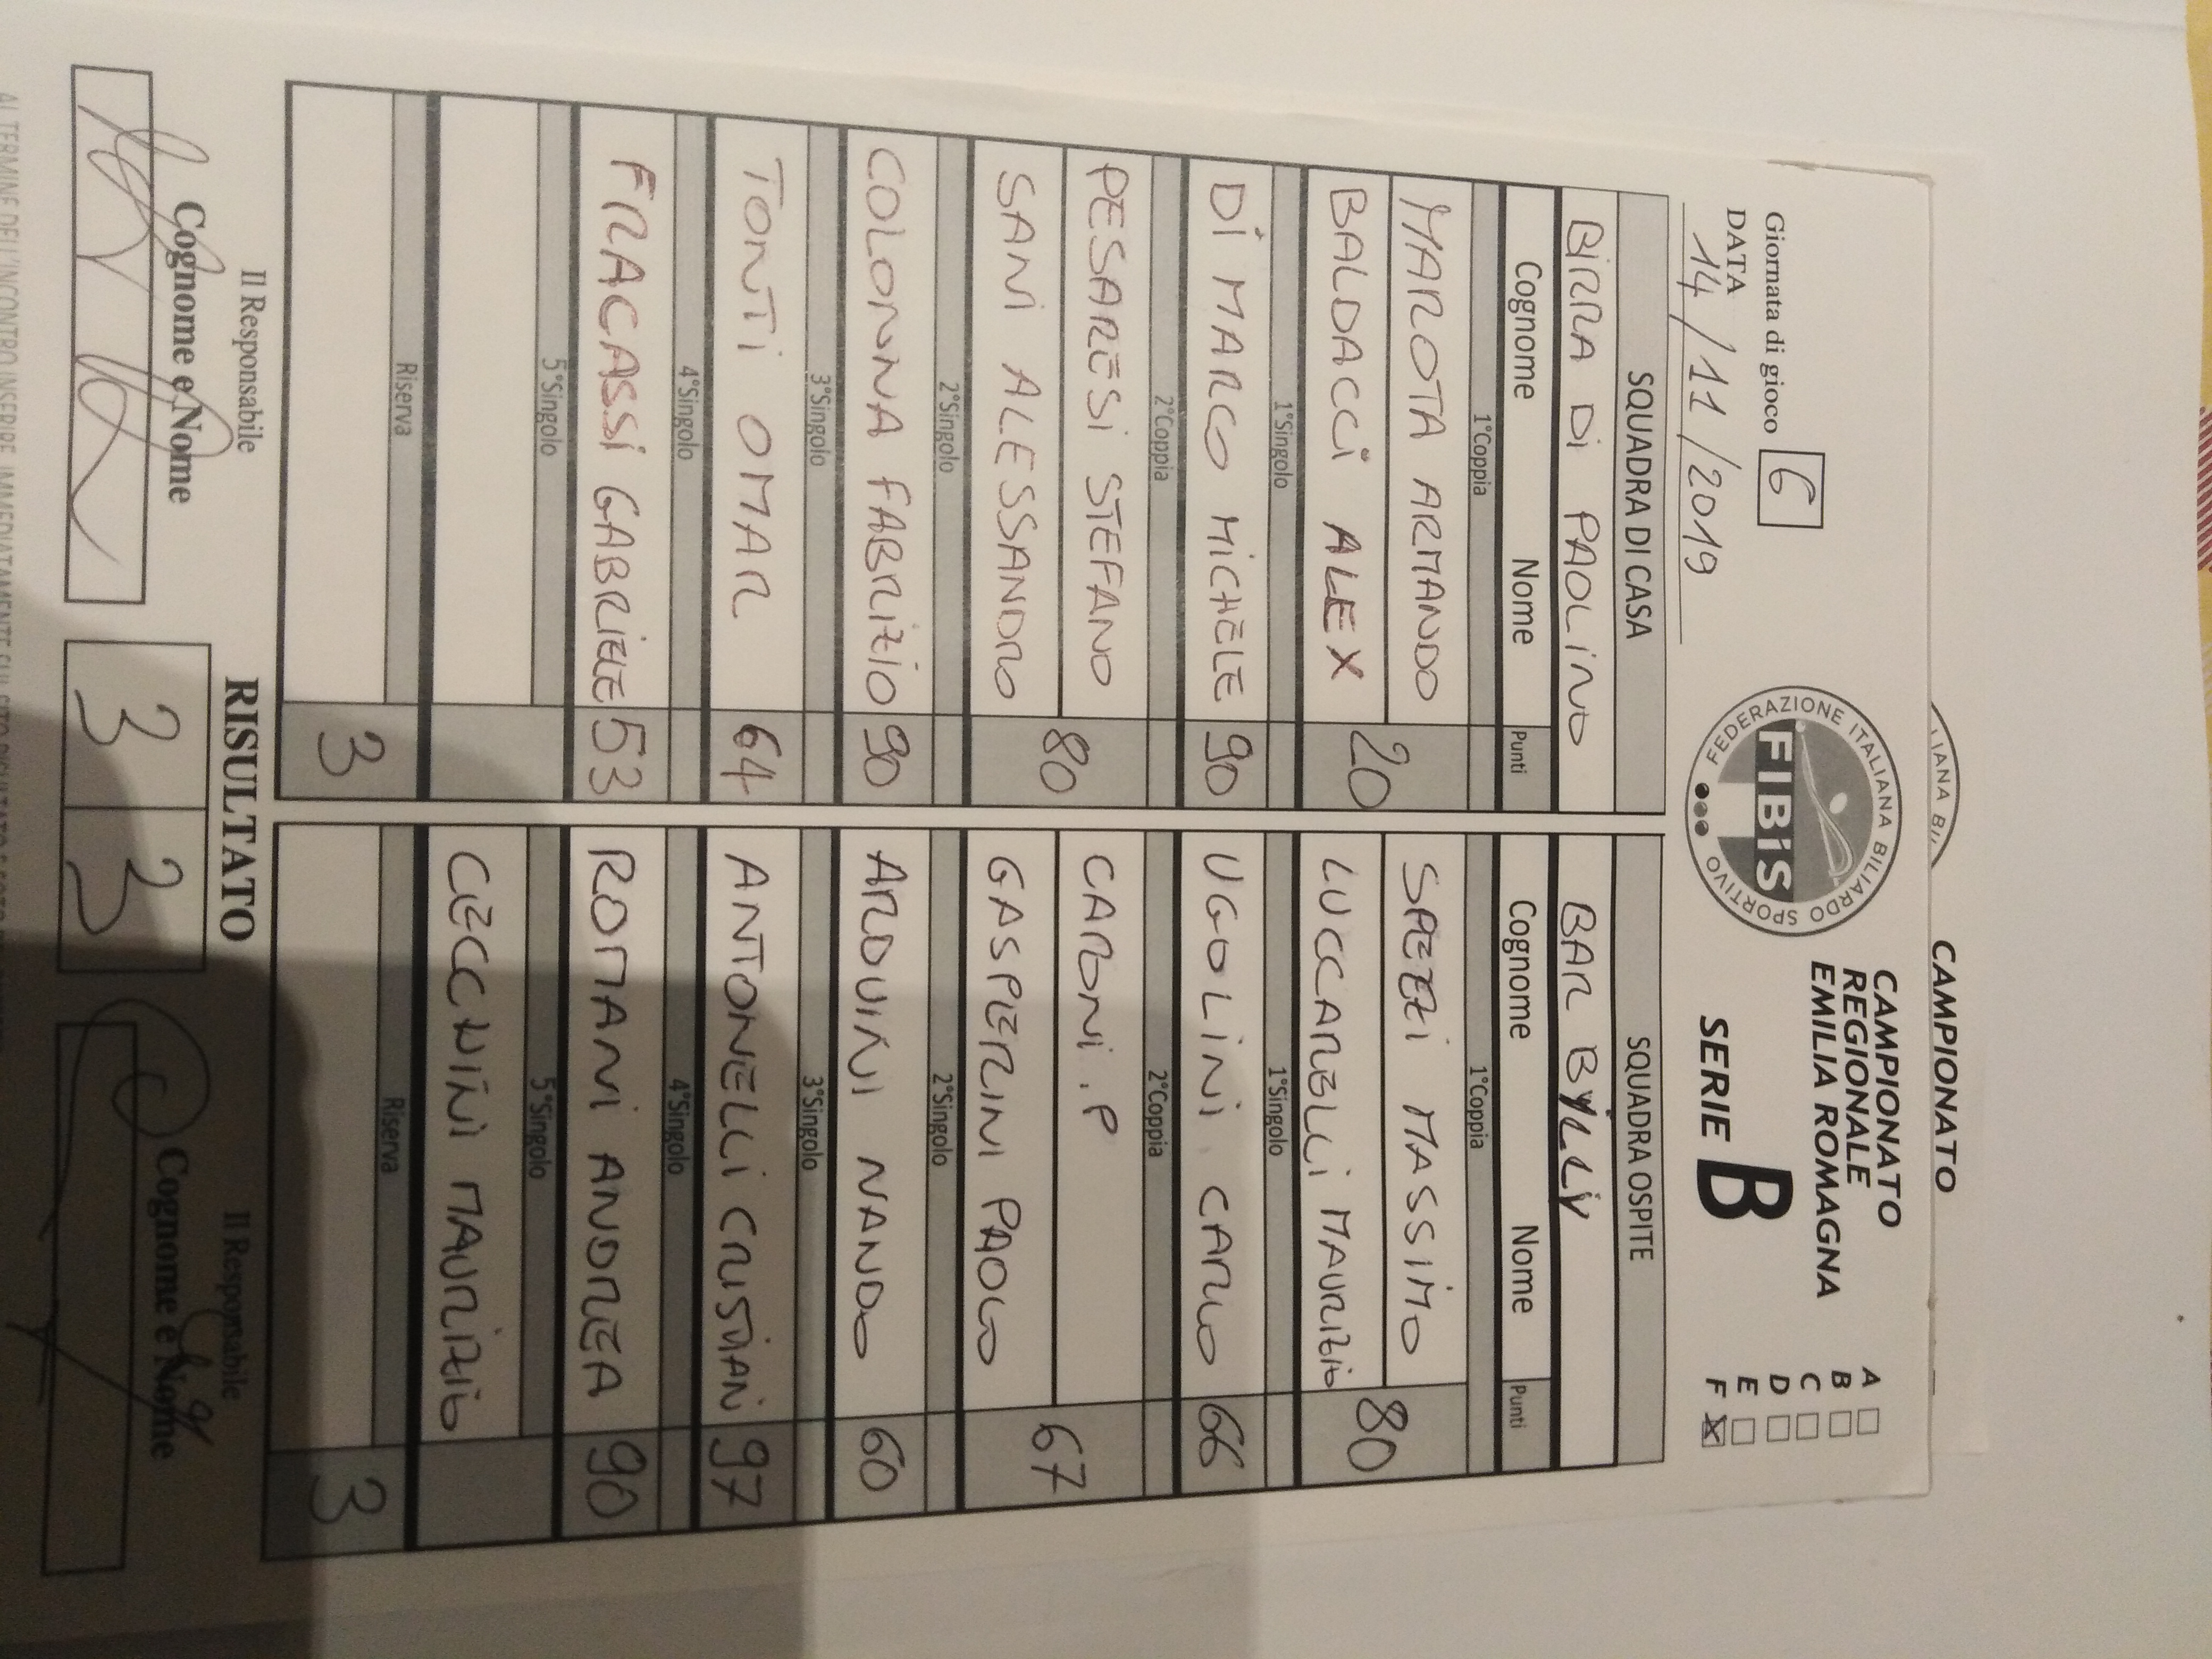 CAMPIONATO
LIANA BIL
Giornata di gioco 6
DATA
14/11/2019
FEDERAZIONE ITALIANA BILIARDO SPORTIVO
FIBiS
CAMPIONATO
REGIONALE
EMILIA ROMAGNA
SERIE B
A
B
C
D
E
F X
SQUADRA DI CASA SQUADRA OSPITE
BIRRA DI PAOLINO BAR BYLLY
Cognome Nome Punti Cognome Nome Punti
1°Coppia 1°Coppia
MAROTA ARMANDO SPEZI MASSIMO
BALDACCI ALEX 20 LUCCARELLI MAURIZIO 80
1°Singolo 1°Singolo
DI MARCO MICHELE 90 UGOLINI CARLO 66
2°Coppia 2°Coppia
PESARESI STEFANO CARONI . P
SANI ALESSANDRO 80 GASPERINI PAOLO 67
2°Singolo 2°Singolo
COLONNA FABRIZIO 90 ARDUINI NANDO 60
3°Singolo 3°Singolo
TONTI OMAR 64 ANTONELLI CRISTIAN 97
4°Singolo 4°Singolo
FRACASSI GABRIELE 53 ROMANI ANDREA 90
5°Singolo 5°Singolo
CECCHINI MAURIZIO
Riserva Riserva
3 3
Il Responsabile RISULTATO Il Responsabile
Cognome e Nome 3 3 Cognome e Nome
AL TERMINE DELL'INCONTRO INSERIRE IMMEDIATAMENTE SUL SITO